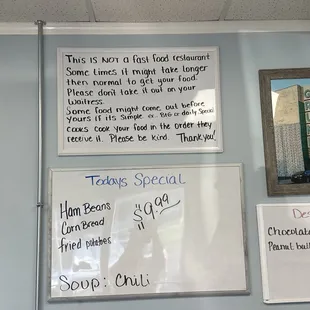 This is NOT a fast food restaurant
Some times it might take longer
then normal to get your food.
Please don't take it out on your
Waitress.
Some food might come out before
yours if its simple or. BIG or daily Special
Cooks cook your food in the order they
receive it. Please be kind. Thank you!
Todays Special
Ham Beans
Corn Bread
fried potatoes
$9.99
Soup: Chili
Des
Chocolat
Peanut but